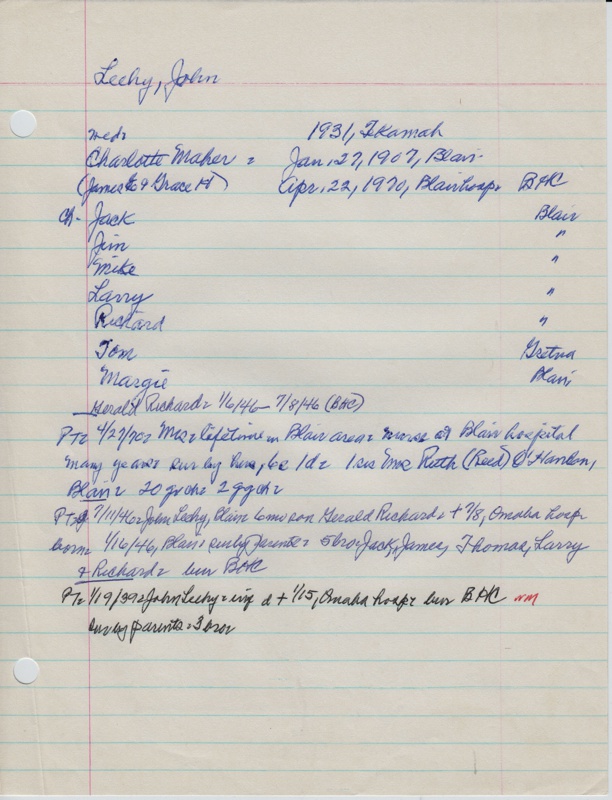 Lechy, John
wed: 1931, Tekamah
Charlotte Maher = Jan, 27, 1907, Blair
(James E & Grace H) Apr, 22, 1970, Blair hosp = BHC
Ch - Jack Blair
Jim "
Mike "
Larry "
Richard "
Tom Gretna
Margie Blair
Gerald Richard = 1/6/46 - 7/8/46 (BHC)
PT = 4/27/70 = Mrs = lifetime in Blair area = nurse at Blair hospital
many years = sur by hus, 6s 1d = 1 sis Mrs Ruth (Reed) O'Hanlon,
Blair = 20 grch = 2 ggch
7/11/46 = John Lechy, Blair 6 mo son Gerald Richard = + 7/8, Omaha hosp
born 1/16/46, Blair = sur by parents = 5 bro = Jack, James, Thomas, Larry
& Richard = bur BHC
PT = 1/19/39 = John Lechy = inf d + 1/15, Omaha hosp = bur BHC nm
sur by parents = 3 bror